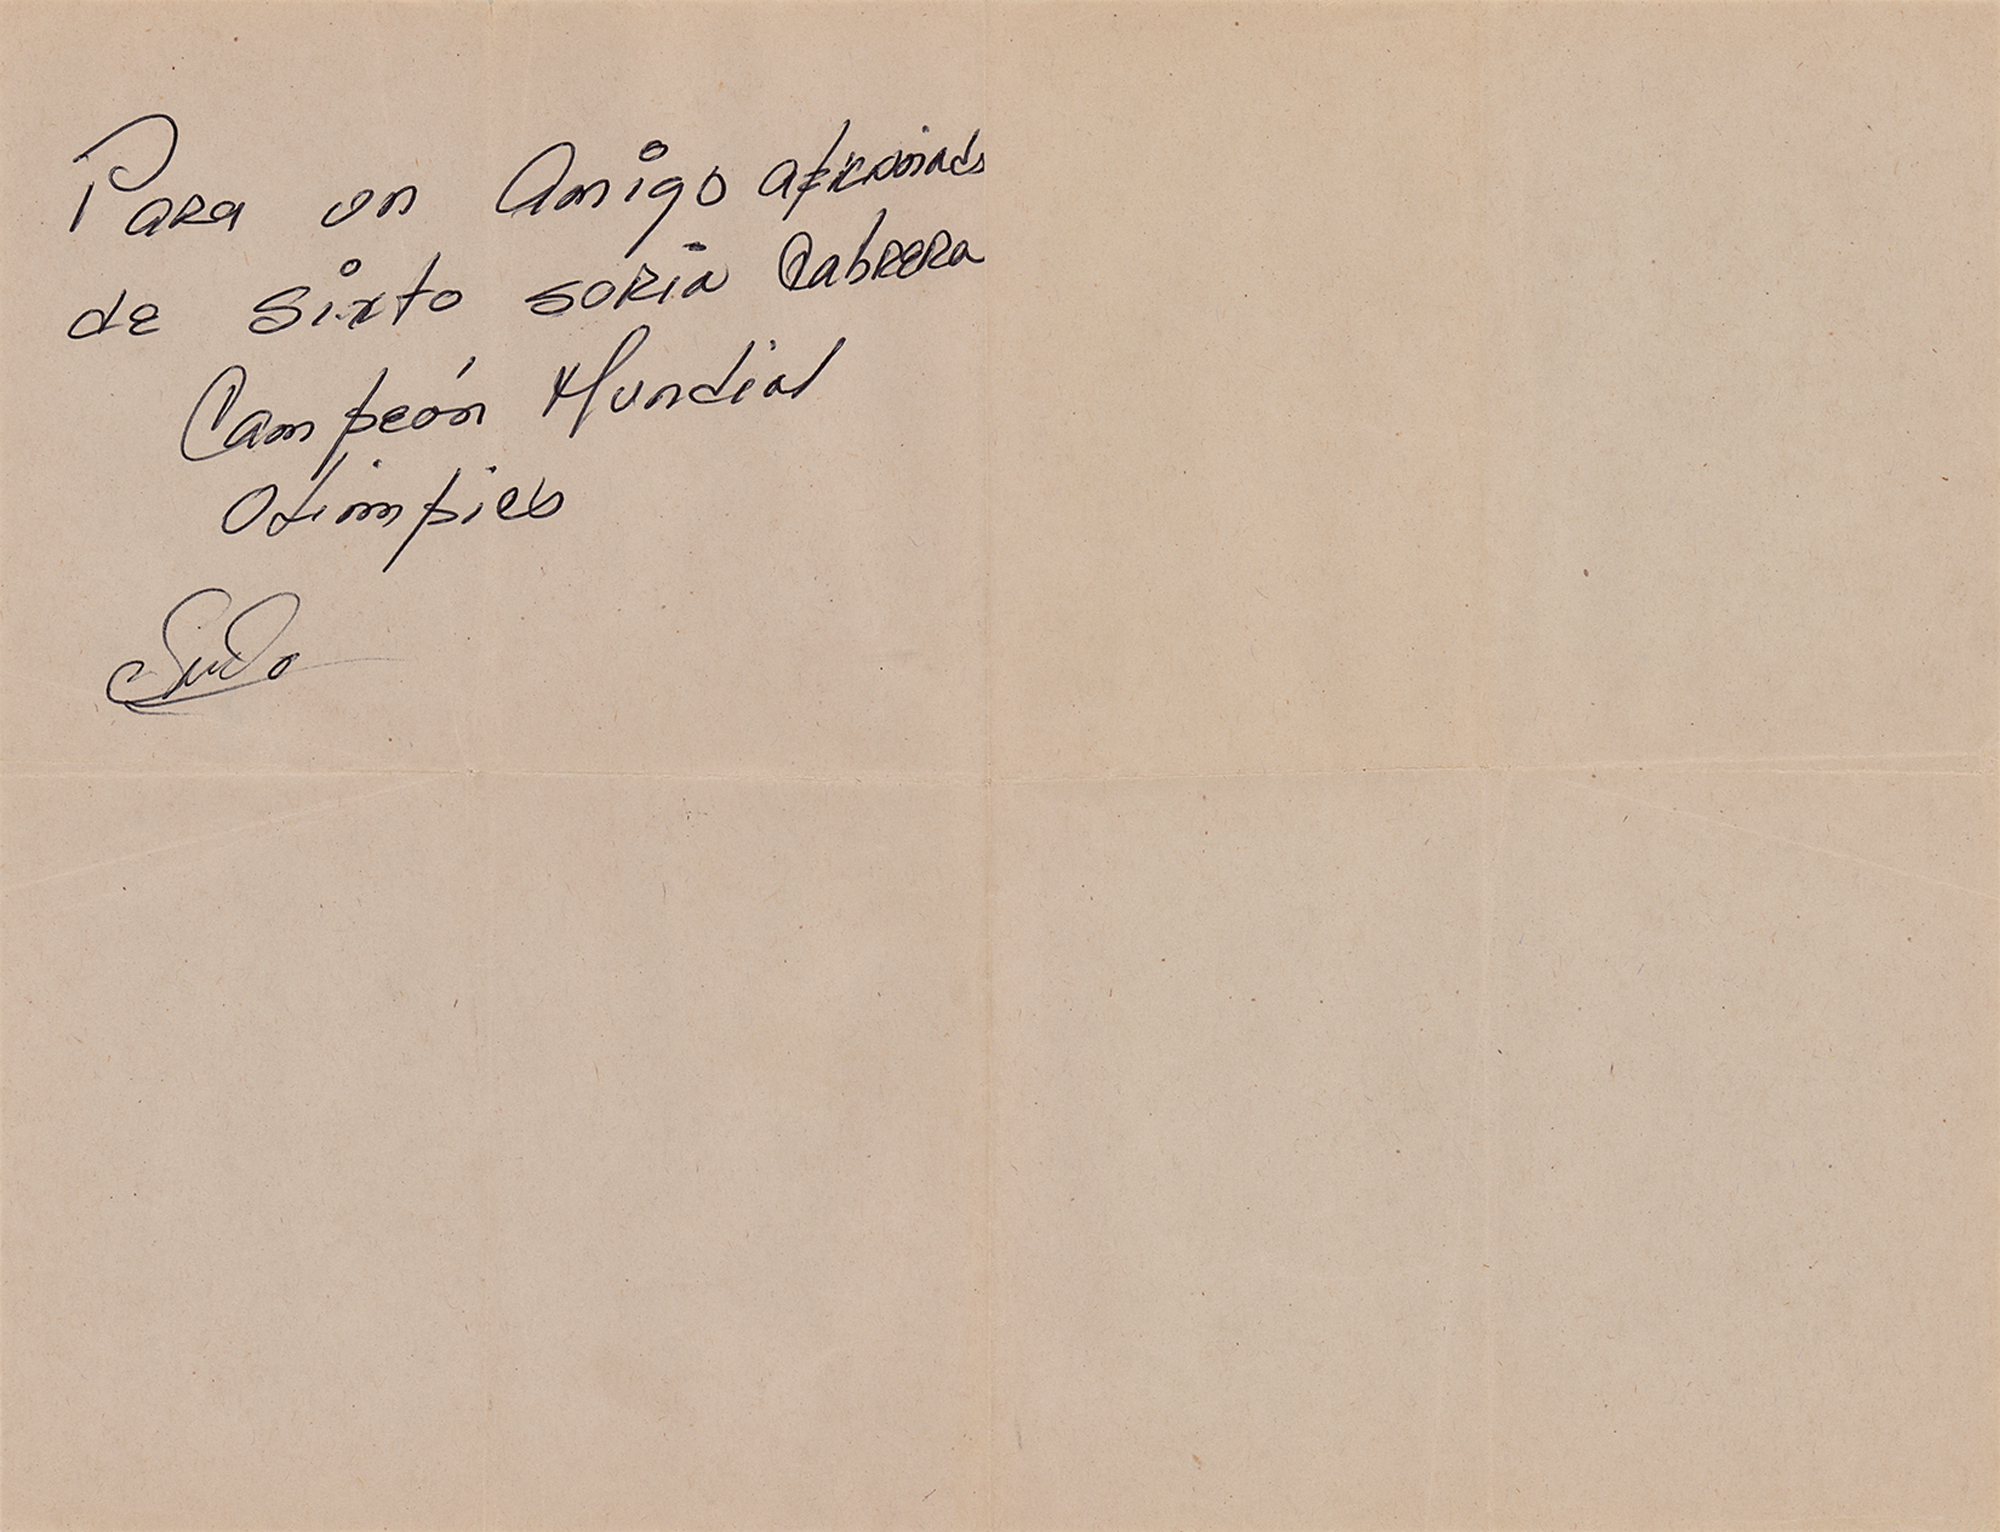 Para un Amigo aficionado
de Sixto Soria Cabrera
Campeón Mundial
Olimpico